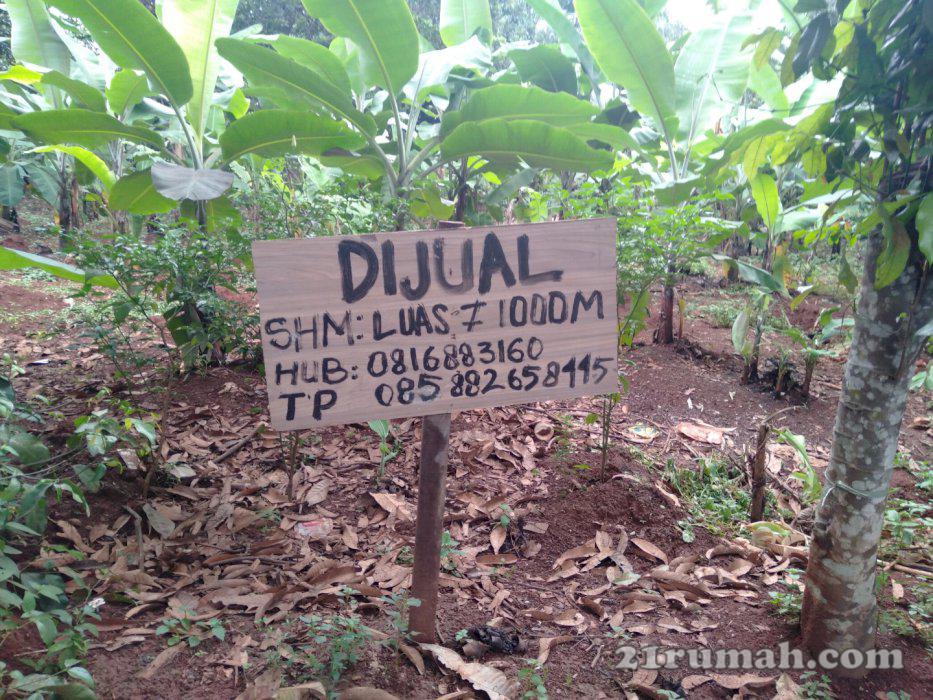 DIJUAL
SHM: LUAS ± 1000M
HUB: 0816883160
TP 085 882658445
21rumah.com